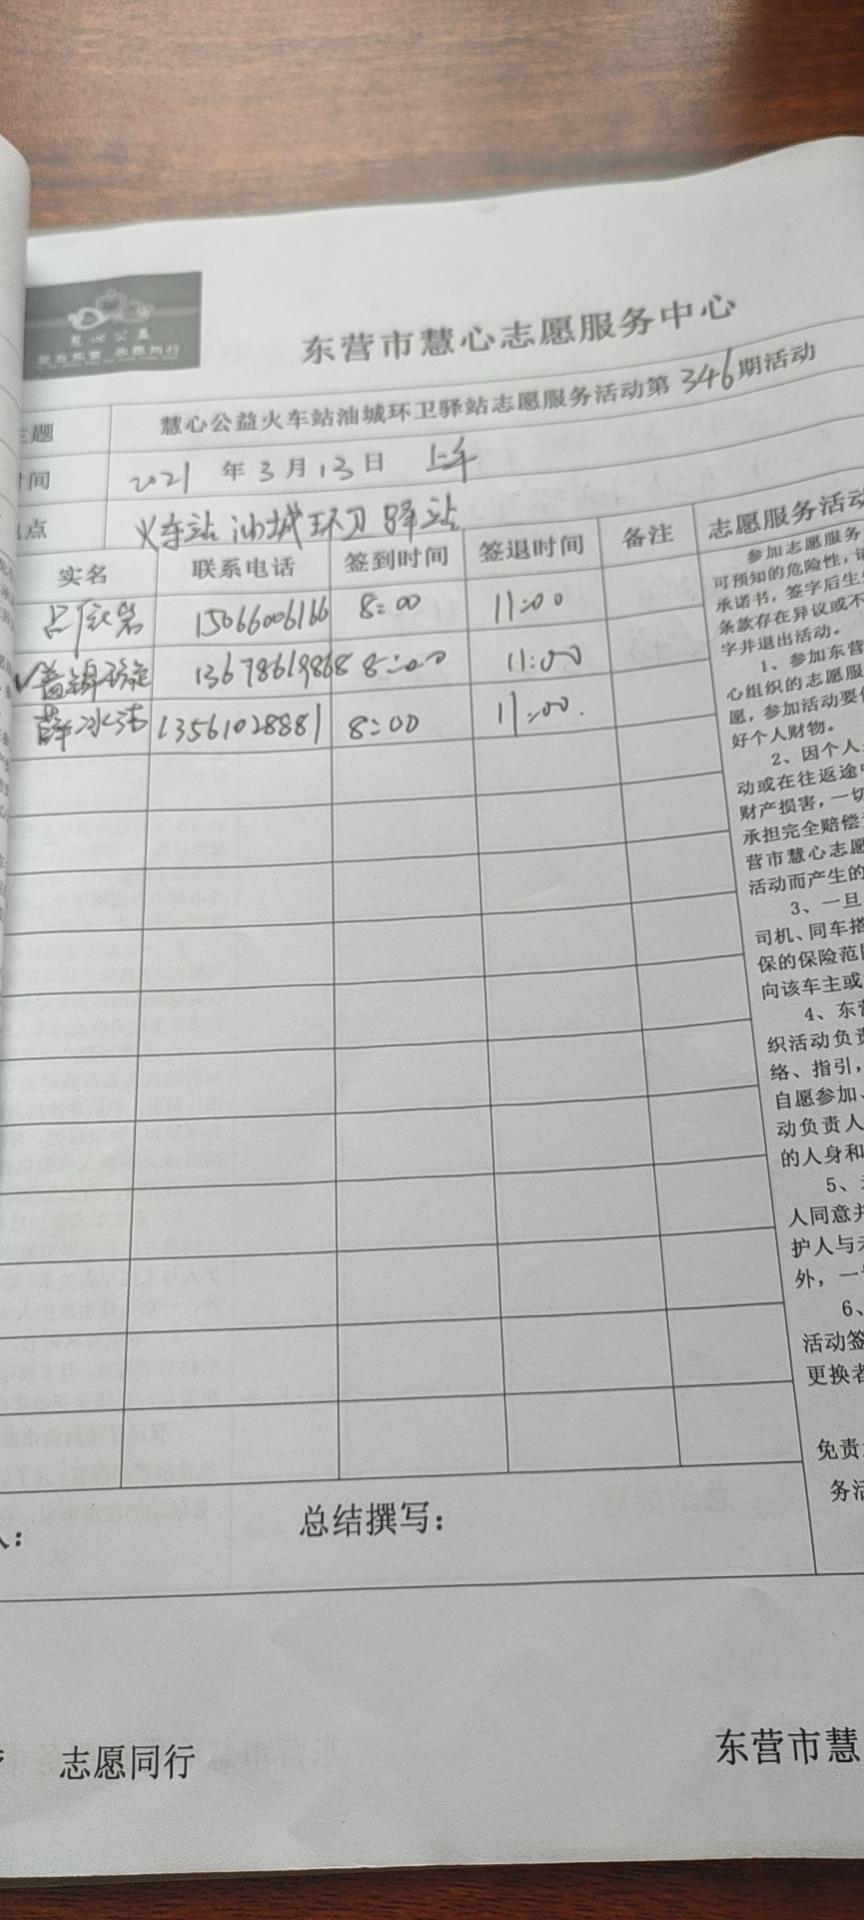 慧心公益
爱在东营 志愿同行
东营市慧心志愿服务中心
主题 慧心公益火车站油城环卫驿站志愿服务活动第346期活动
时间 2021年3月13日 上午
地点 火车站油城环卫驿站
实名 联系电话 签到时间 签退时间 备注 志愿服务活动
15066006166 8:00 11:00
13678619868 8:00 11:00
薛冰洁 13561028881 8:00 11:00.
参加志愿服务
可预知的危险性,请
承诺书,签字后生
条款存在异议或不
字并退出活动。
1、参加东营
心组织的志愿服
愿,参加活动要
好个人财物。
2、因个人
动或在往返途中
财产损害,一切
承担完全赔偿
营市慧心志愿
活动而产生的
3、一旦
司机、同车搭
保的保险范围
向该车主或
4、东营
织活动负责
络、指引,
自愿参加、
动负责人
的人身和
5、
人同意并
护人与未
外,一切
6、
活动签
更换者
免责
务活
人: 总结撰写:
志愿同行 东营市慧